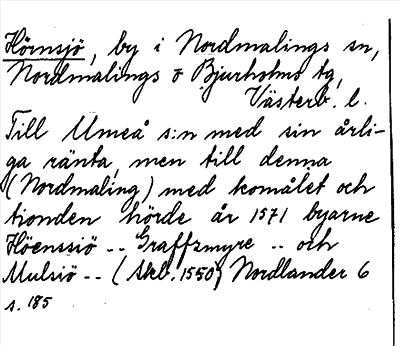 Hörnsjö, by i Nordmalings sn,
Nordmalings o Bjurholms tg,
Västerb. l.
Till Umeå s:n med sin årli-
ga ränta, men till denna
(Nordmaling) med komålet och
tionden hörde år 1571 byarne
Höenssiö -- Graffzmyre -- och
Mulsiö -- ( 1550) Nordlander 6
s. 185